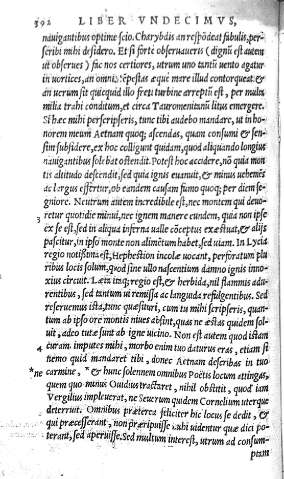 392 LIBER VNDECIMVS,
nauigantibus optime scio. Charybdis an respōdeat fabulis, per-
scribi mihi desidero. Et si forte obseruaueris (dignū est autem
ut obserues) fac nos certiores, utrum uno tantū uento agatur
in uortices, an omnis tēpestas æque mare illud contorqueat. &
an uerum sit quicquid illo freti turbine arreptū est, per multa
milia trahi conditum, et circa Tauromenitanū litus emergere.
Si hæc mihi perscripseris, tunc tibi audebo mandare, ut in ho-
norem meum Aetnam quoq; ascendas, quam consumi & sen-
sim subsidere, ex hoc colligunt quidam, quod aliquando longius
nauigantibus solebat ostendi. Potest hoc accidere, nō quia mon
tis altitudo descendit, sed quia ignis euanuit, & minus uehemēs
ac largus effertur, ob eandem causam fumo quoq; per diem se-
gniore. Neutrum autem incredibile est, nec montem qui deuo-
3 retur quotidie minui, nec ignem manere eundem, quia non ipse
ex se est, sed in aliqua inferna ualle cōceptus exæstuat, & alijs
pascitur, in ipso monte non alimētum habet, sed uiam. In Lycia
regio notissima est, Hephestion incolæ uocant, perforatum plu
ribus locis solum, quod sine ullo nascentium damno ignis inno-
xius circuit. Læta itaq; regio est, & herbida, nil flammis adu-
rentibus, sed tantum ui remissa ac languida refulgentibus. Sed
reseruemus ista, tunc quæsituri, cum tu mihi scripseris, quan-
tum ab ipso ore montis niues absint, quas ne æstas quidem sol-
uit, adeo tutæ sunt ab igne uicino. Non est autem quod istam
4 curam imputes mihi, morbo enim tuo daturus eras, etiam si
nemo quid mandaret tibi, donec Aetnam describas in tuo
*ne carmine, * & hunc solennem omnibus Poëtis locum attingas,
quem quo minus Ouidius tractaret, nihil obstitit, quod iam
Vergilius impleuerat, ne Seuerum quidem Cornelium uterque
deterruit. Omnibus præterea feliciter hic locus se dedit, &
qui præcesserant, non præripuisse mihi uidentur quæ dici po-
terant, sed aperuisse. Sed multum interest, utrum ad consum-
ptam